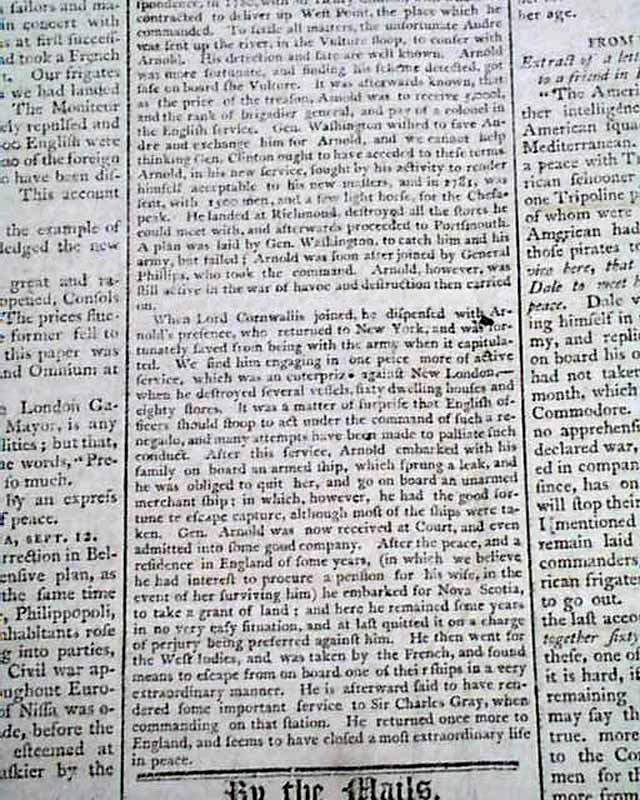 failors and ma-
an concert with
as at firſt ſucceſſ-
nd took a French
t. Our frigates
s we had landed
The Moniteur
ely repulſed and
oo Engliſh were
of the foreign
o have been diſ-
This account
the example of
ledged the new
great and ra-
ppened, Conſols
The prices
e former fell to
this paper was
nd Omnium at
e London Ga-
Mayor, is any
lities; but that,
he words, "Pre-
ſo much.
by an expreſs
f peace.
A, SEPT. 12.
rrection in Bel-
enſive plan, as
the ſame time
, Philippopoli,
nhabitants roſe
g into parties,
Civil war ap-
oughout Euro-
of Niſſa was o-
de, before the
eſteemed at
aſkier by the
contracted to deliver up Weſt Point, the place which he
commanded. To ſettle all matters, the unfortunate Andre
was ſent up the river, in the Vulture ſloop, to confer with
Arnold. His detection and fate are well known. Arnold
was more fortunate, and finding his ſcheme detected, got
ſafe on board the Vulture. It was afterwards known, that
as the price of the treaſon, Arnold was to receive
and the rank of brigadier general, and pay of a colonel in
the Engliſh ſervice. Gen. Waſhington wiſhed to ſave An-
dre and exchange him for Arnold, and we cannot help
thinking Gen. Clinton ought to have acceded to theſe terms
Arnold, in his new ſervice, ſought by his activity to render
himſelf acceptable to his new maſters, and in 1781, was
ſent, with 1500 men, and a few light horſe, for the Cheſa-
peak. He landed at Richmond, deſtroyed all the ſtores he
could meet with, and afterwards proceeded to Portſmouth.
A plan was laid by Gen. Waſhington, to catch him and his
army, but failed; Arnold was ſoon after joined by General
Phillips, who took the command. Arnold, however, was
ſtill active in the war of havoc and deſtruction then carried
on.
When Lord Cornwallis joined, he diſpenſed with Ar-
nold's preſence, who returned to New York, and was for-
tunately ſaved from being with the army when it capitula-
ted. We find him engaging in one peice more of active
ſervice, which was an enterprize againſt New London,—
when he deſtroyed ſeveral veſſels, ſixty dwelling houſes and
eighty ſtores. It was a matter of ſurpriſe that Engliſh of-
ficers ſhould ſtoop to act under the command of ſuch a re-
negado, and many attempts have been made to palliate ſuch
conduct. After this ſervice, Arnold embarked with his
family on board an armed ſhip, which ſprung a leak, and
he was obliged to quit her, and go on board an unarmed
merchant ſhip; in which, however, he had the good for-
tune to eſcape capture, although moſt of the ſhips were ta-
ken. Gen. Arnold was now received at Court, and even
admitted into ſome good company. After the peace, and a
reſidence in England of ſome years, (in which we believe
he had intereſt to procure a penſion for his wife, in the
event of her ſurviving him) he embarked for Nova Scotia,
to take a grant of land; and here he remained ſome years
in no very eaſy ſituation, and at laſt quitted it on a charge
of perjury being preferred againſt him. He then went for
the Weſt Indies, and was taken by the French, and found
means to eſcape from on board one of their ſhips in a very
extraordinary manner. He is afterward ſaid to have ren-
dered ſome important ſervice to Sir Charles Gray, when
commanding on that ſtation. He returned once more to
England, and ſeems to have cloſed a moſt extraordinary life
in peace.
By the Mails.
her age.
FROM
Extract of a lett
to a friend in
"The Ameri
ther intelligenc
American ſqua
Mediterranean.
a peace with T
rican ſchooner
one Tripoline p
of whom were
American had
thoſe pirates t
vice here, that
Dale to meet
peace. Dale v
ing himſelf in
my, and repli
on board his
had not taken
month, which
Commodore.
no apprehenſi
declared war,
ed in compan
ſince, has on
will ſtop their
I [mentioned
remain laid
commanders,
rican frigate
to go out.
the laſt acco
together ſixty
theſe, one of
it is hard, it
remaining
may ſay th
true. more
to the Co
men for th
more from